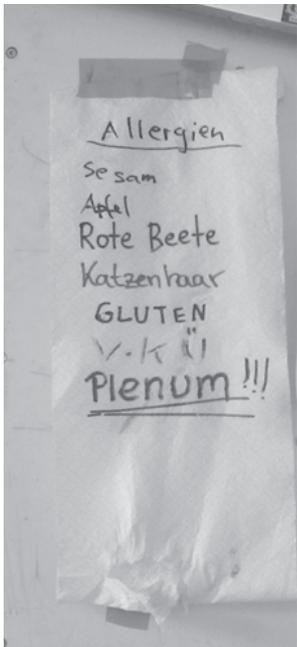 Allergien
Sesam
Apfel
Rote Beete
Katzenhaar
GLUTEN
V.KÜ
Plenum!!!